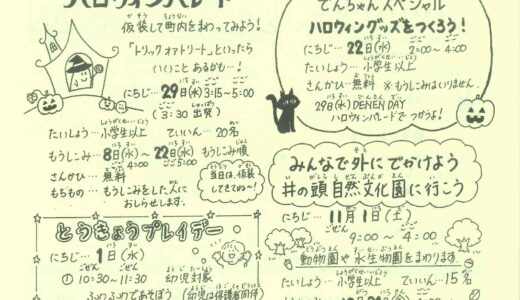 ハロウィンパレード
仮装して町内をまわってみよう!
「トリックオアトリート」といったら
いいことあるかも…!
にちじ…29日(水) 3:15~5:00
(3:30 出発)
たいしょう…小学生以上 ていいん…20名
もうしこみ…8日(水)~22日(水) もうしこみ順
4:00 5:00
さんかひ…無料
もちもの…もうしこみをした人に
おしらせします。
当日は、仮装
してきてね~!
とうきょうプレイデー
にちじ…1日(水)
① 10:30~11:30 幼児対象
ふわふわであそぼう (幼児は保護者同伴)
でんちゃんスペシャル
ハロウィングッズをつくろう!
にちじ…22日(水) 2:00~4:00
たいしょう…小学生以上
さんかひ…無料 ※もうしこみはいりません。
29日(水) DENEN DAY
ハロウィンパレードでつかうよ!
みんなで外にでかけよう
井の頭自然文化園に行こう
にちじ…11月1日(土)
9:00~4:00
動物園や水生物園をまわります。
たいしょう…小学生以上 ていいん…15名